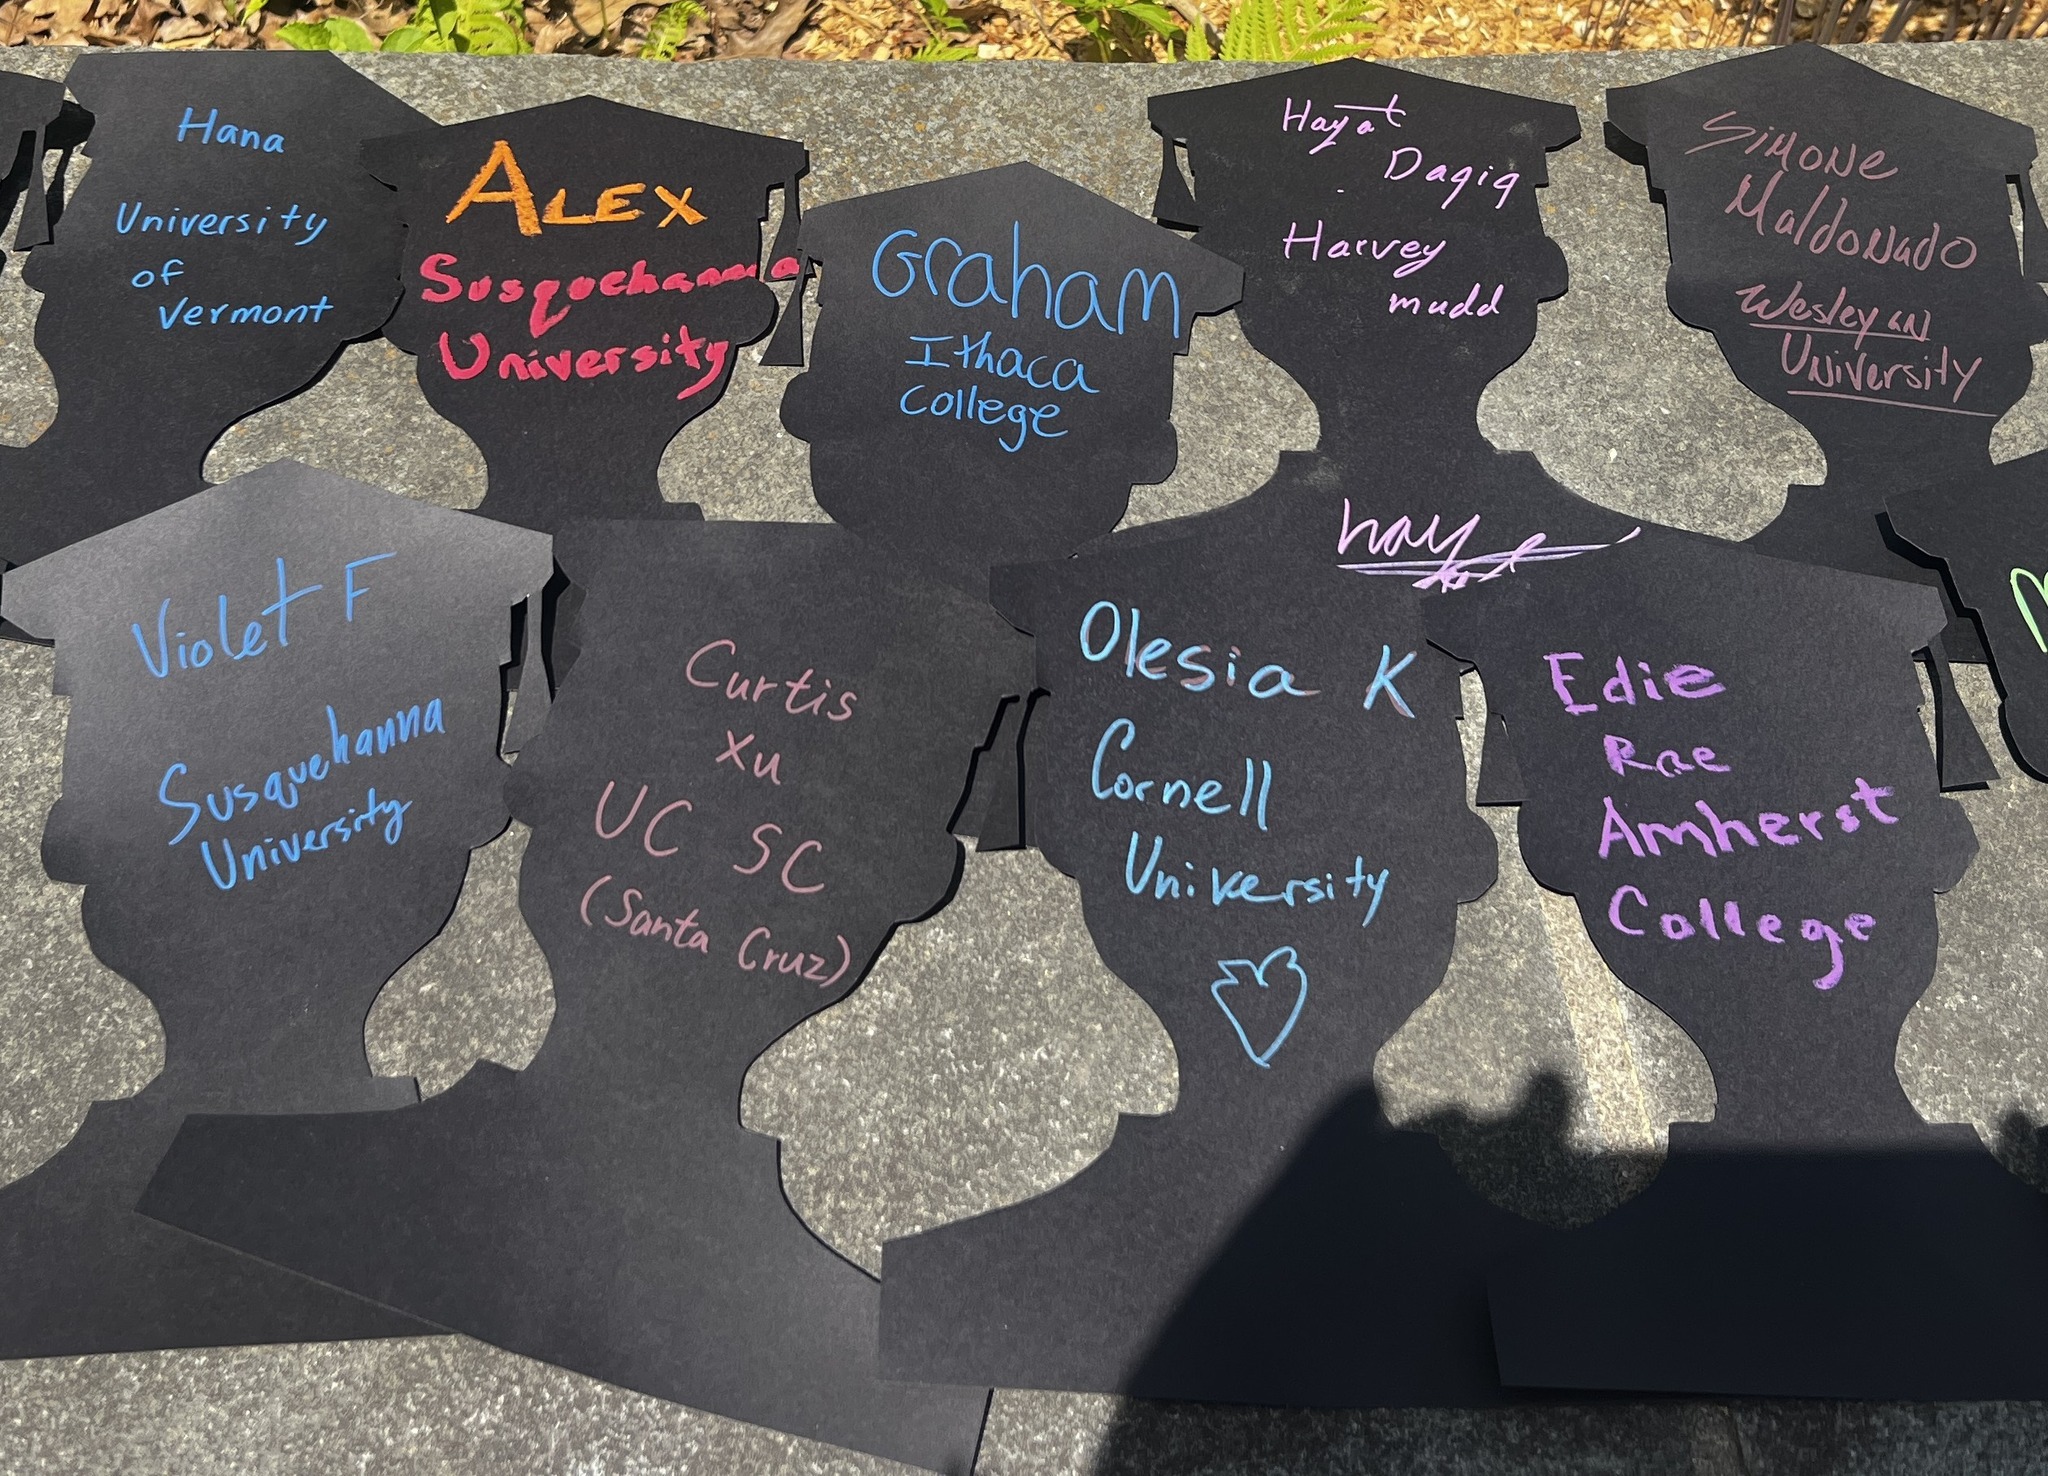 Hana
University
of
Vermont
ALEX
Susquehanna
University
Graham
Ithaca
College
Hayat
Daqiq
Harvey
mudd
hayat
Simone
Maldonado
Wesleyan
University
Violet F
Susquehanna
University
Curtis
Xu
UC SC
(Santa Cruz)
Olesia K
Cornell
University
Edie
Rae
Amherst
College